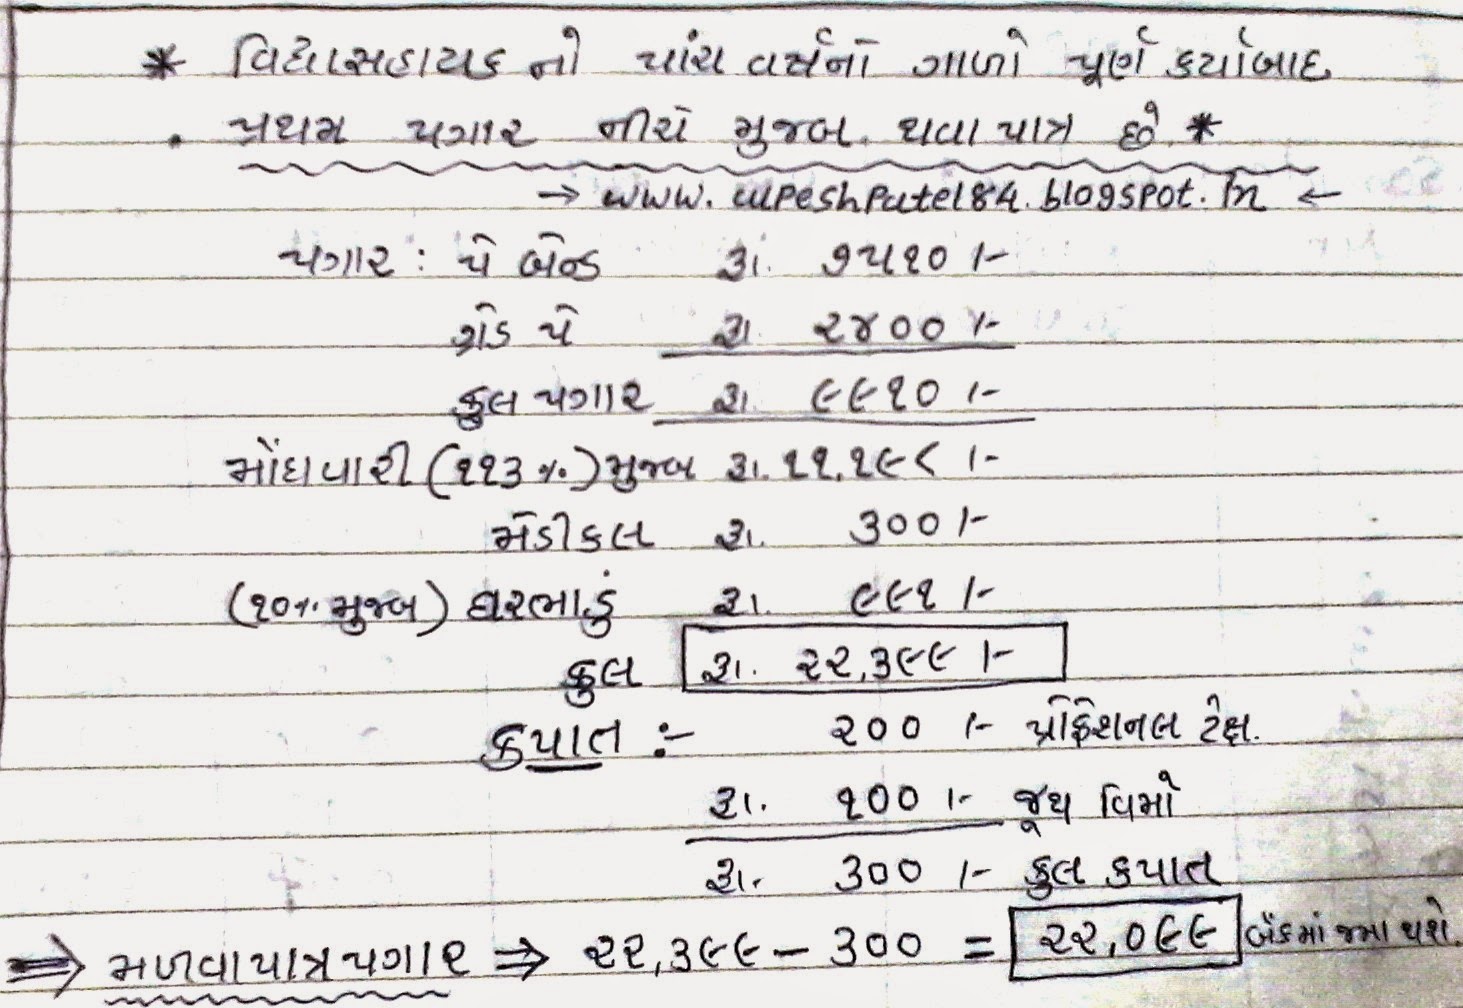 * વિદ્યાસહાયક નો પાંચ વર્ષનો ગાળો પૂર્ણ કર્યાબાદ
. પ્રથમ પગાર નીચે મુજબ. થવા પાત્ર છે. *
→ www.alpeshpatel84.blogspot.in ←
પગાર : પે બેન્ડ રૂા. ૭૫૧૦ ।-
ગ્રેડ પે રૂા. ૨૪૦૦ ।-
કુલ પગાર રૂા. ૯૯૧૦ ।-
મોંઘવારી (૧૧૩ %) મુજબ રૂા. ૧૧,૧૯૮ ।-
મેડીકલ રૂા. ૩૦૦ ।-
(૧૦% મુજબ) ઘરભાડું રૂા. ૯૯૧ ।-
કુલ રૂા. ૨૨,૩૯૯ ।-
કપાત :- ૨૦૦ ।- પ્રોફેશનલ ટેક્ષ.
રૂા. ૧૦૦ ।- જૂથ વિમો
રૂા. ૩૦૦ ।- કુલ કપાત
⇒ મળવાપાત્ર પગાર ⇒ ૨૨,૩૯૯ - ૩૦૦ = ૨૨,૦૯૯ બેંકમાં જમા થશે.